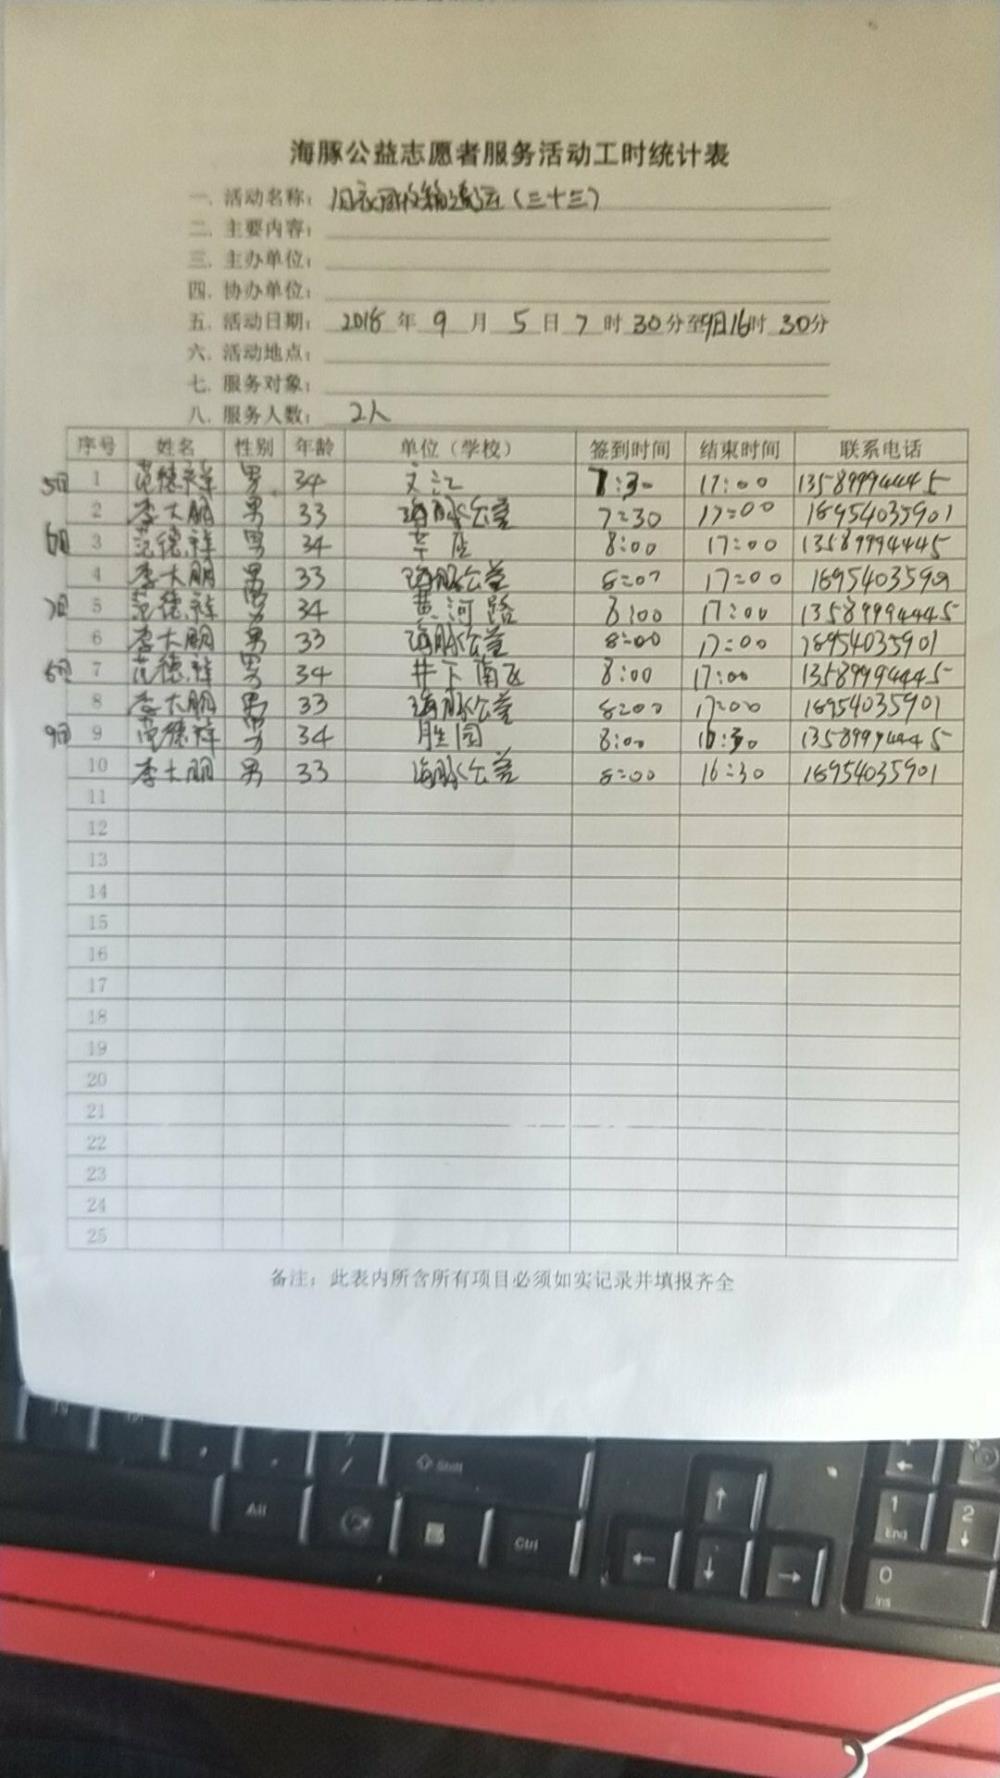 海豚公益志愿者服务活动工时统计表
一. 活动名称: 旧衣回收箱清运(三十三)
二. 主要内容:
三. 主办单位:
四. 协办单位:
五. 活动日期: 2018 年 9 月 5 日 7 时 30 分至9日16时 30分
六. 活动地点:
七. 服务对象:
八. 服务人数: 2人
序号 姓名 性别 年龄 单位(学校) 签到时间 结束时间 联系电话
5日 1 范德祥 男 34 文汇 7:30 17:00 13589994445
2 李大鹏 男 33 海豚公益 7:30 17:00 18954035901
6日 3 范德祥 男 34 辛店 8:00 17:00 13589994445
4 李大鹏 男 33 海豚公益 8:00 17:00 18954035901
7日 5 范德祥 男 34 黄河路 8:00 17:00 13589994445
6 李大鹏 男 33 海豚公益 8:00 17:00 18954035901
8日 7 范德祥 男 34 井下南区 8:00 17:00 13589994445
8 李大鹏 男 33 海豚公益 8:00 17:00 18954035901
9日 9 范德祥 男 34 胜园 8:00 16:30 13589994445
10 李大鹏 男 33 海豚公益 8:00 16:30 18954035901
11
12
13
14
15
16
17
18
19
20
21
22
23
24
25
备注: 此表内所含所有项目必须如实记录并填报齐全
Shift
Alt
Ctrl
1
End
2
0
Ins